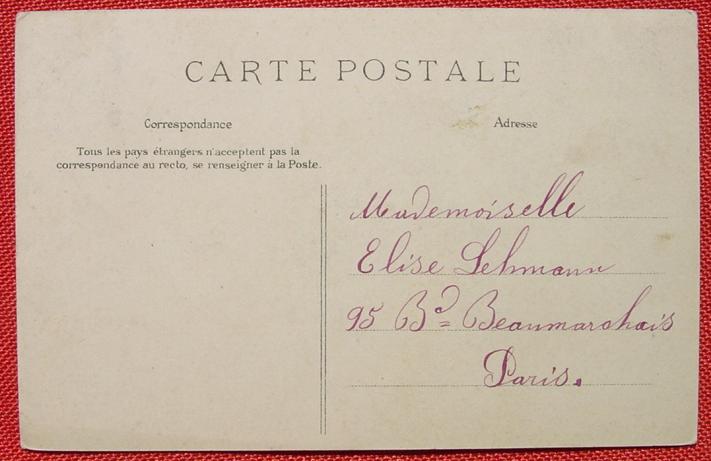 CARTE POSTALE
Correspondance
Tous les pays étrangers n'acceptent pas la
correspondance au recto, se renseigner à la Poste.
Adresse
Mademoiselle
Elise Lehmann
95 Bd Beaumarchais
Paris.